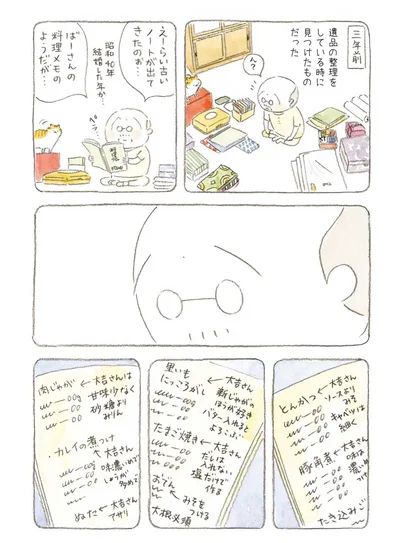 三年前
遺品の整理を
している時に
見つけたもの
だった
ん？
えーらい古い
ノートが出て
きたのお…
昭和40年
結婚した年か…
ばーさんの
料理メモの
ようだが…
とんかつ←大吉さん
ソースより
キャベツは
細く
豚角煮←大吉さん
味は
濃いめ
たき込みご
里いも
にっころがし
大吉さん
新じゃがの
ほうが好き
バター入れると
よろこぶ
たまご焼き←大吉さん
だしは
入れない
塩だけで
作る
おでん
みそを
つける
大根必須
肉じゃが←大吉さんは
甘味少なく
砂糖より
みりん
・カレイの煮つけ
大吉さん
味濃いめで
しょうが
多めで
ぬた←大吉さん
アサリ